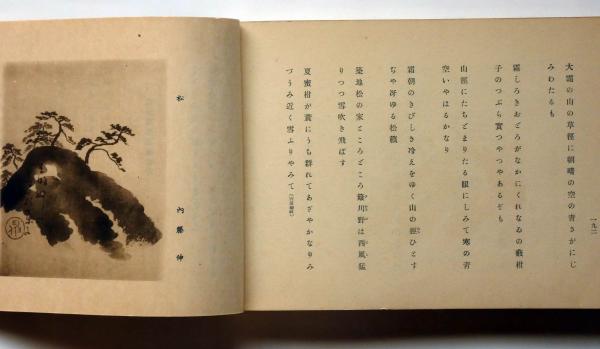 一九二
大霜の山の草徑に朝晴の空の青さがにじ
みわたるも
霜しろきおどろがなかにくれなゐの藪柑
子のつぶら實つやつやあるぞも
山徑にたちどまりたる眼にしみて寒の青
空いやはるかなり
霜朝のきびしき冷えをゆく山の徑ひとす
ぢや冴ゆる松籟
築地松の家ところどころ簸川野は西風猛
りつつ雪吹き飛ばす
夏蜜柑が叢にうち群れてあざやかなりみ
づうみ近く雪ふりやみて
松
內藤伸